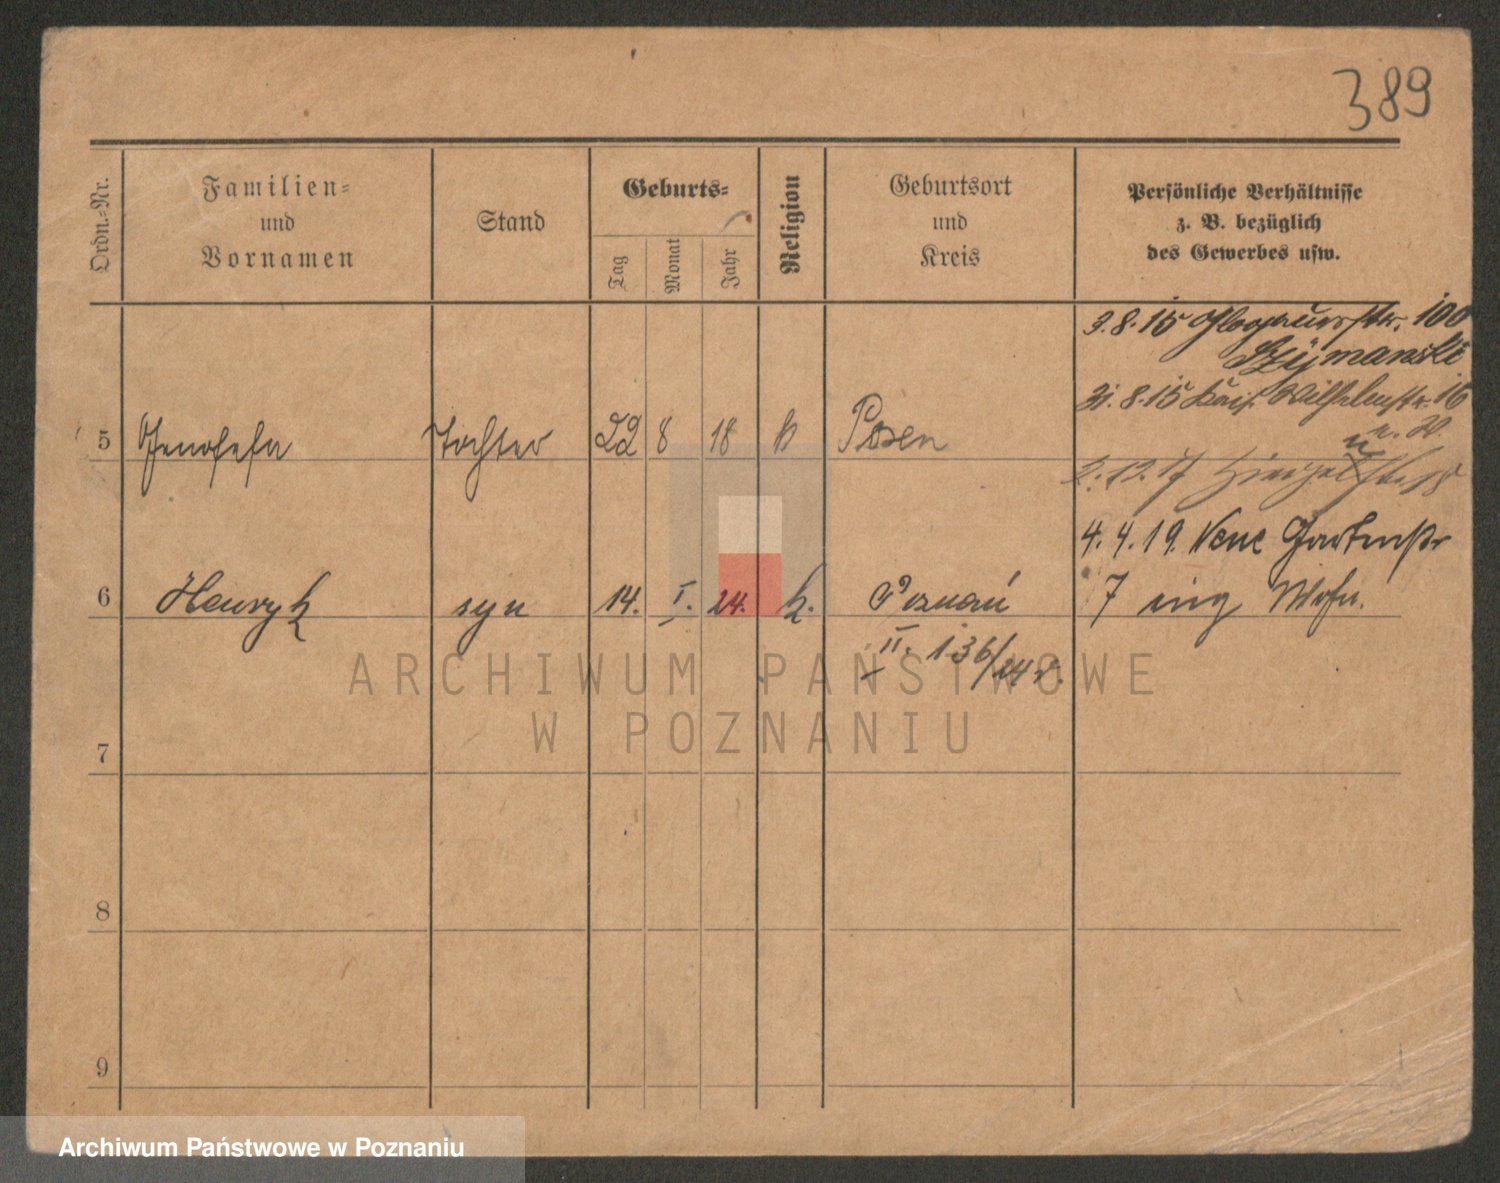 389
Ordn.-Nr.
Familien-
und
Vornamen
Stand
Geburts-
Tag
Monat
Jahr
Religion
Geburtsort
und
Kreis
Persönliche Verhältnisse
z. B. bezüglich
des Gewerbes usw.
3.8.15 100
Szymanski
31.8.15 Kais. Wilhelmstr. 16
5 Genofefa Tochter 22 8 18 k Posen
2.12.17
4.4.19. Neue Gartenstr
6 Henryk syn 14. I. 24. k. Poznań 7 Wohn.
II. 136/24 r.
7
8
9
ARCHIWUM PAŃSTWOWE
W POZNANIU
Archiwum Państwowe w Poznaniu